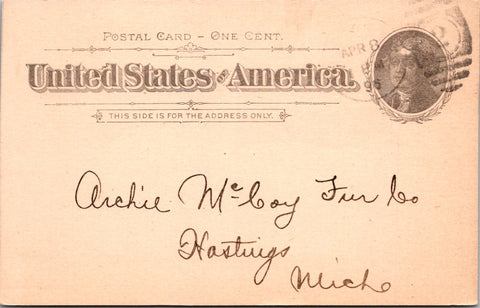 POSTAL CARD – ONE CENT.
United States of America.
THIS SIDE IS FOR THE ADDRESS ONLY.
APR 8
Archie McCoy Fur Co
Hastings
Mich